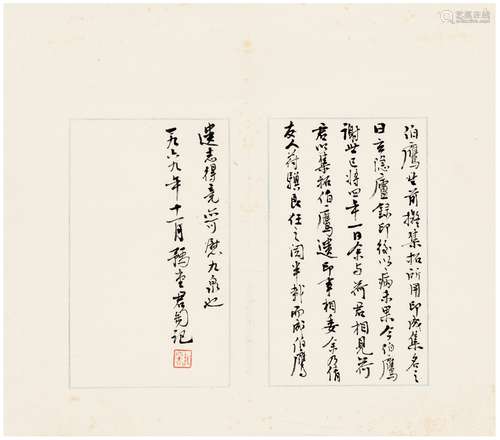 伯鹰生前拟集拓所用印成集名之
曰玄隐庐录印后以病未果今伯鹰
谢世已将四年一日余与荷君相见荷
君以集拓伯鹰遗印事相委余乃倩
友人符骥良任之阅半载而成伯鹰
遗志得竟亦可慰九泉也
一九六九年十一月 君匋记